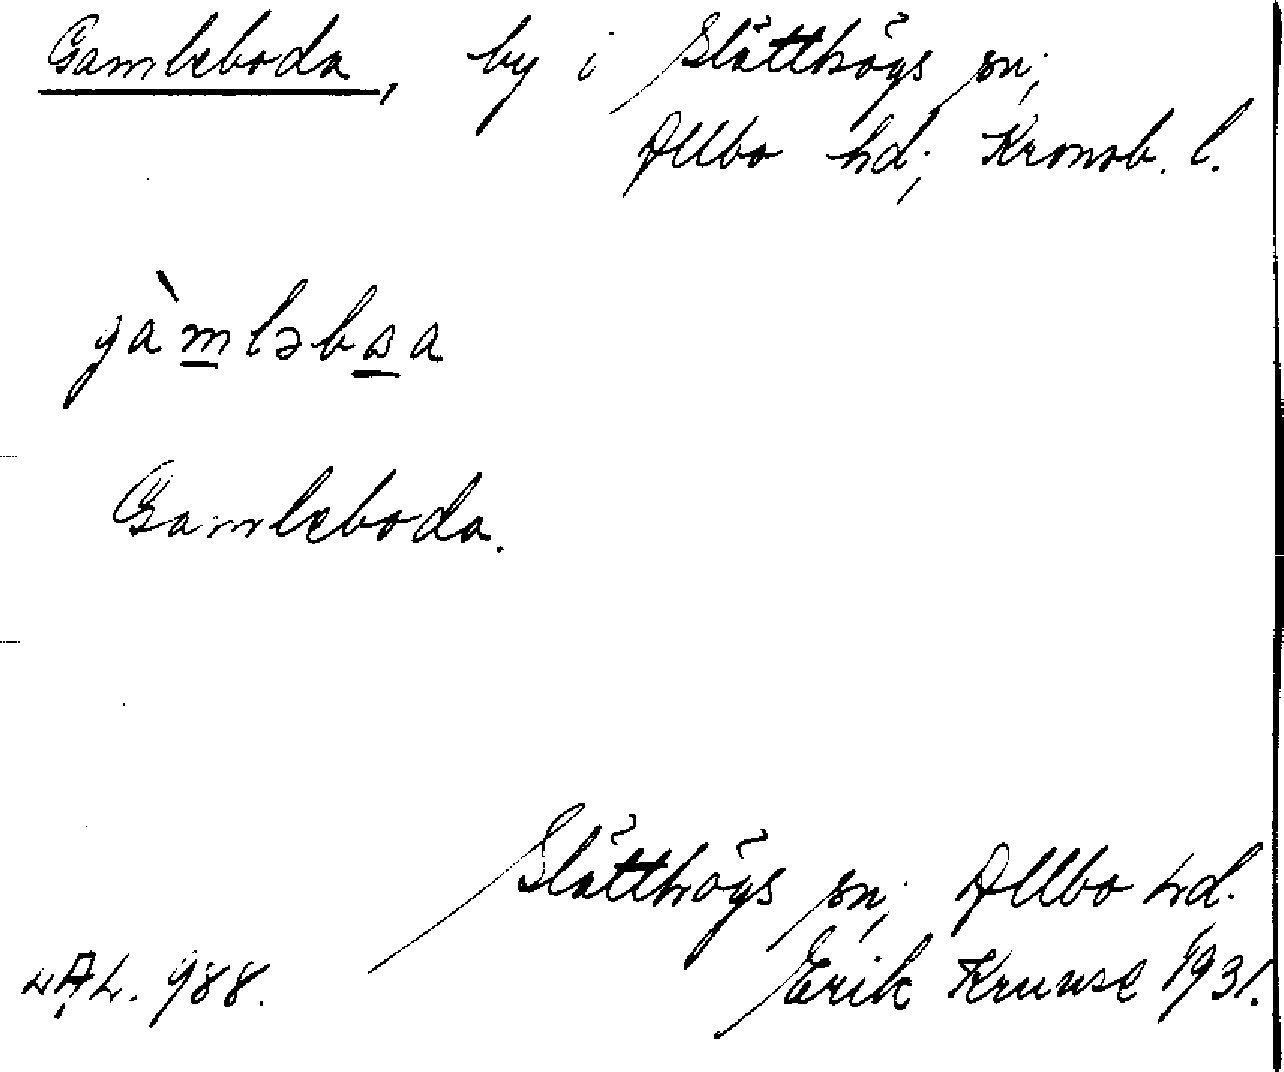 Gamleboda, by i Slätthögs sn,
Allbo hd, Kronob. l.
gàmləbɷa
Gamleboda.
Slätthögs sn, Allbo hd.
LAL. 988. Erik Kruuse 1931.